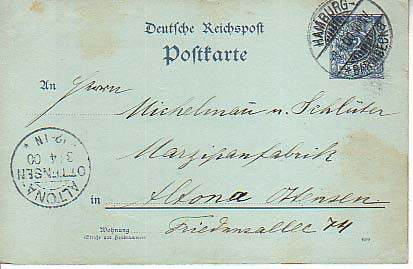 Deutsche Reichspost
Postkarte
HAMBURG-
BARMBECK
An Herrn
Michelmann u. Schlüter
Marzipanfabrik
in Altona Ottensen
Friedensallee 74
Wohnung
(Straße und Hausnummer)
ALTONA-
OTTENSEN
3 4 00
12-1N